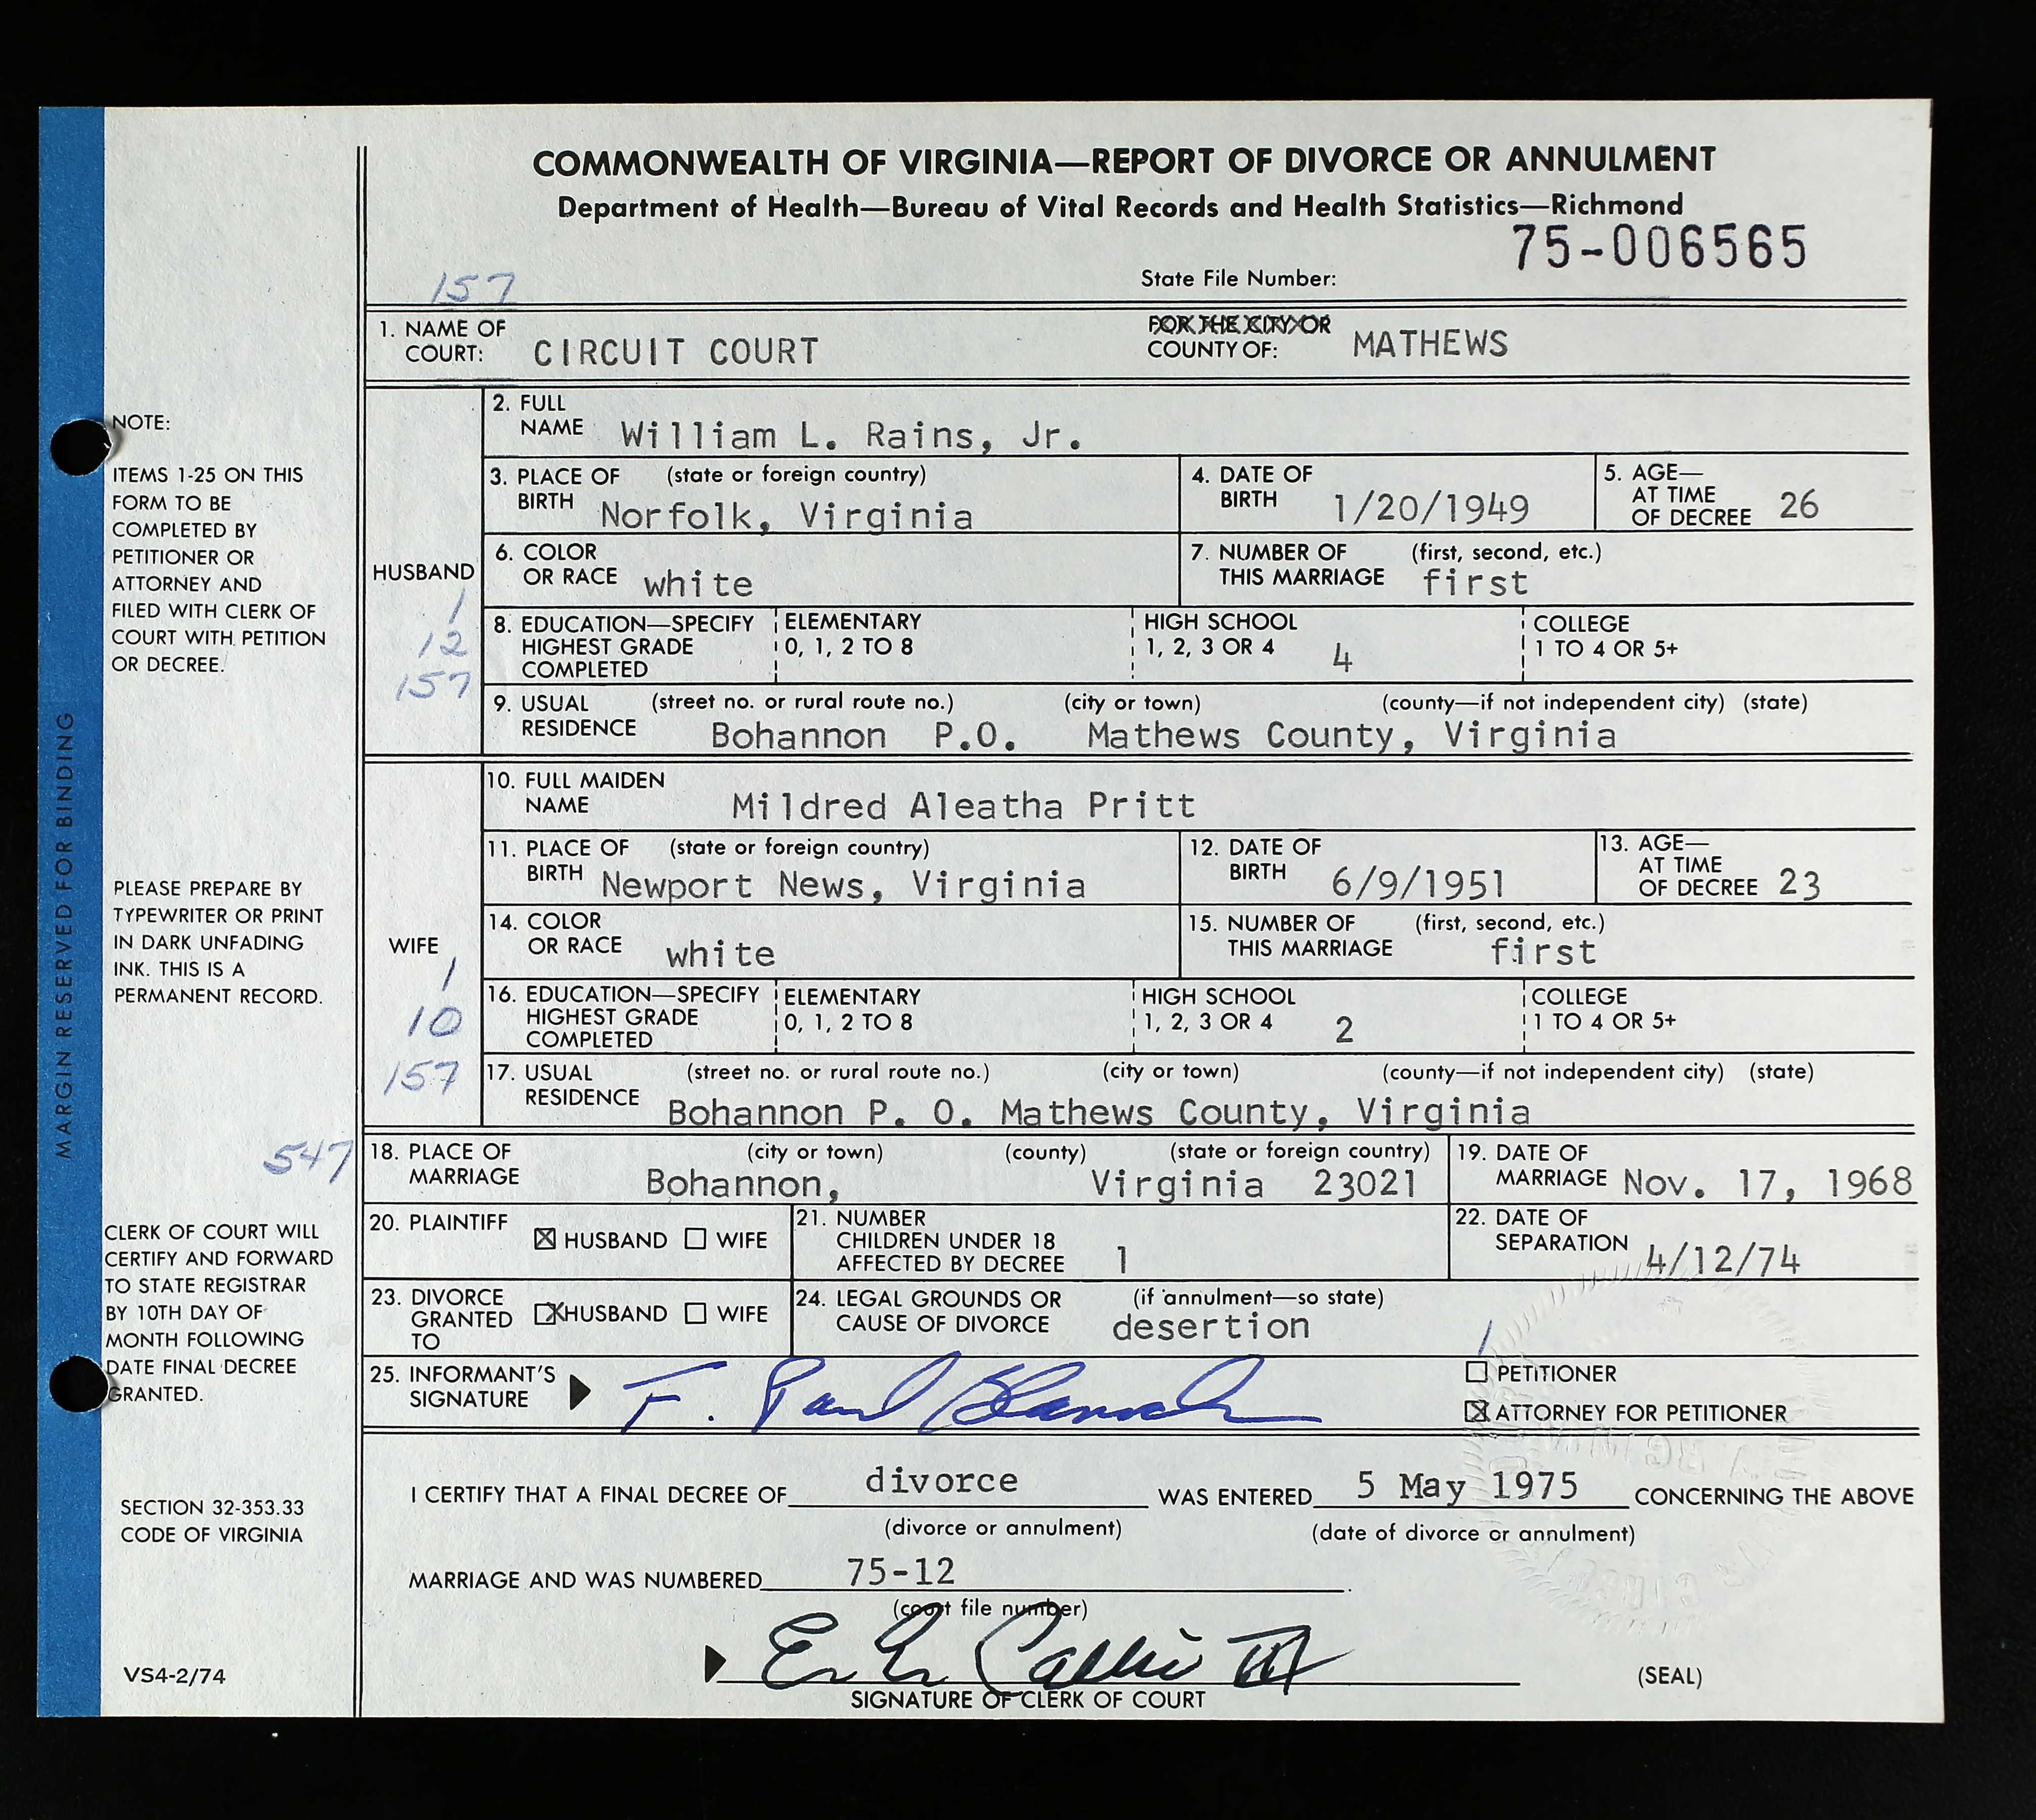 COMMONWEALTH OF VIRGINIA—REPORT OF DIVORCE OR ANNULMENT
Department of Health—Bureau of Vital Records and Health Statistics—Richmond
75-006565
State File Number:
157
1. NAME OF COURT: CIRCUIT COURT FOR THE CITY OR COUNTY OF: MATHEWS
NOTE:
ITEMS 1-25 ON THIS
FORM TO BE
COMPLETED BY
PETITIONER OR
ATTORNEY AND
FILED WITH CLERK OF
COURT WITH PETITION
OR DECREE.
PLEASE PREPARE BY
TYPEWRITER OR PRINT
IN DARK UNFADING
INK. THIS IS A
PERMANENT RECORD.
CLERK OF COURT WILL
CERTIFY AND FORWARD
TO STATE REGISTRAR
BY 10TH DAY OF
MONTH FOLLOWING
DATE FINAL DECREE
GRANTED.
SECTION 32-353.33
CODE OF VIRGINIA
VS4-2/74
MARGIN RESERVED FOR BINDING
HUSBAND
1
12
157
2. FULL NAME William L. Rains, Jr.
3. PLACE OF BIRTH (state or foreign country) Norfolk, Virginia 4. DATE OF BIRTH 1/20/1949 5. AGE— AT TIME OF DECREE 26
6. COLOR OR RACE white 7. NUMBER OF THIS MARRIAGE (first, second, etc.) first
8. EDUCATION—SPECIFY HIGHEST GRADE COMPLETED ELEMENTARY 0, 1, 2 TO 8 HIGH SCHOOL 1, 2, 3 OR 4 4 COLLEGE 1 TO 4 OR 5+
9. USUAL RESIDENCE (street no. or rural route no.) (city or town) (county—if not independent city) (state)
Bohannon P.O. Mathews County, Virginia
WIFE
1
10
157
10. FULL MAIDEN NAME Mildred Aleatha Pritt
11. PLACE OF BIRTH (state or foreign country) Newport News, Virginia 12. DATE OF BIRTH 6/9/1951 13. AGE— AT TIME OF DECREE 23
14. COLOR OR RACE white 15. NUMBER OF THIS MARRIAGE (first, second, etc.) first
16. EDUCATION—SPECIFY HIGHEST GRADE COMPLETED ELEMENTARY 0, 1, 2 TO 8 HIGH SCHOOL 1, 2, 3 OR 4 2 COLLEGE 1 TO 4 OR 5+
17. USUAL RESIDENCE (street no. or rural route no.) (city or town) (county—if not independent city) (state)
Bohannon P. O. Mathews County, Virginia
547
18. PLACE OF MARRIAGE (city or town) (county) (state or foreign country) Bohannon, Virginia 23021 19. DATE OF MARRIAGE Nov. 17, 1968
20. PLAINTIFF ☒ HUSBAND ☐ WIFE 21. NUMBER CHILDREN UNDER 18 AFFECTED BY DECREE 1 22. DATE OF SEPARATION 4/12/74
23. DIVORCE GRANTED TO ☒ HUSBAND ☐ WIFE 24. LEGAL GROUNDS OR CAUSE OF DIVORCE (if annulment—so state) desertion
1
25. INFORMANT'S SIGNATURE F. Paul ☐ PETITIONER
☒ ATTORNEY FOR PETITIONER
I CERTIFY THAT A FINAL DECREE OF divorce WAS ENTERED 5 May 1975 CONCERNING THE ABOVE
(divorce or annulment) (date of divorce or annulment)
MARRIAGE AND WAS NUMBERED 75-12.
(court file number)
III
SIGNATURE OF CLERK OF COURT (SEAL)